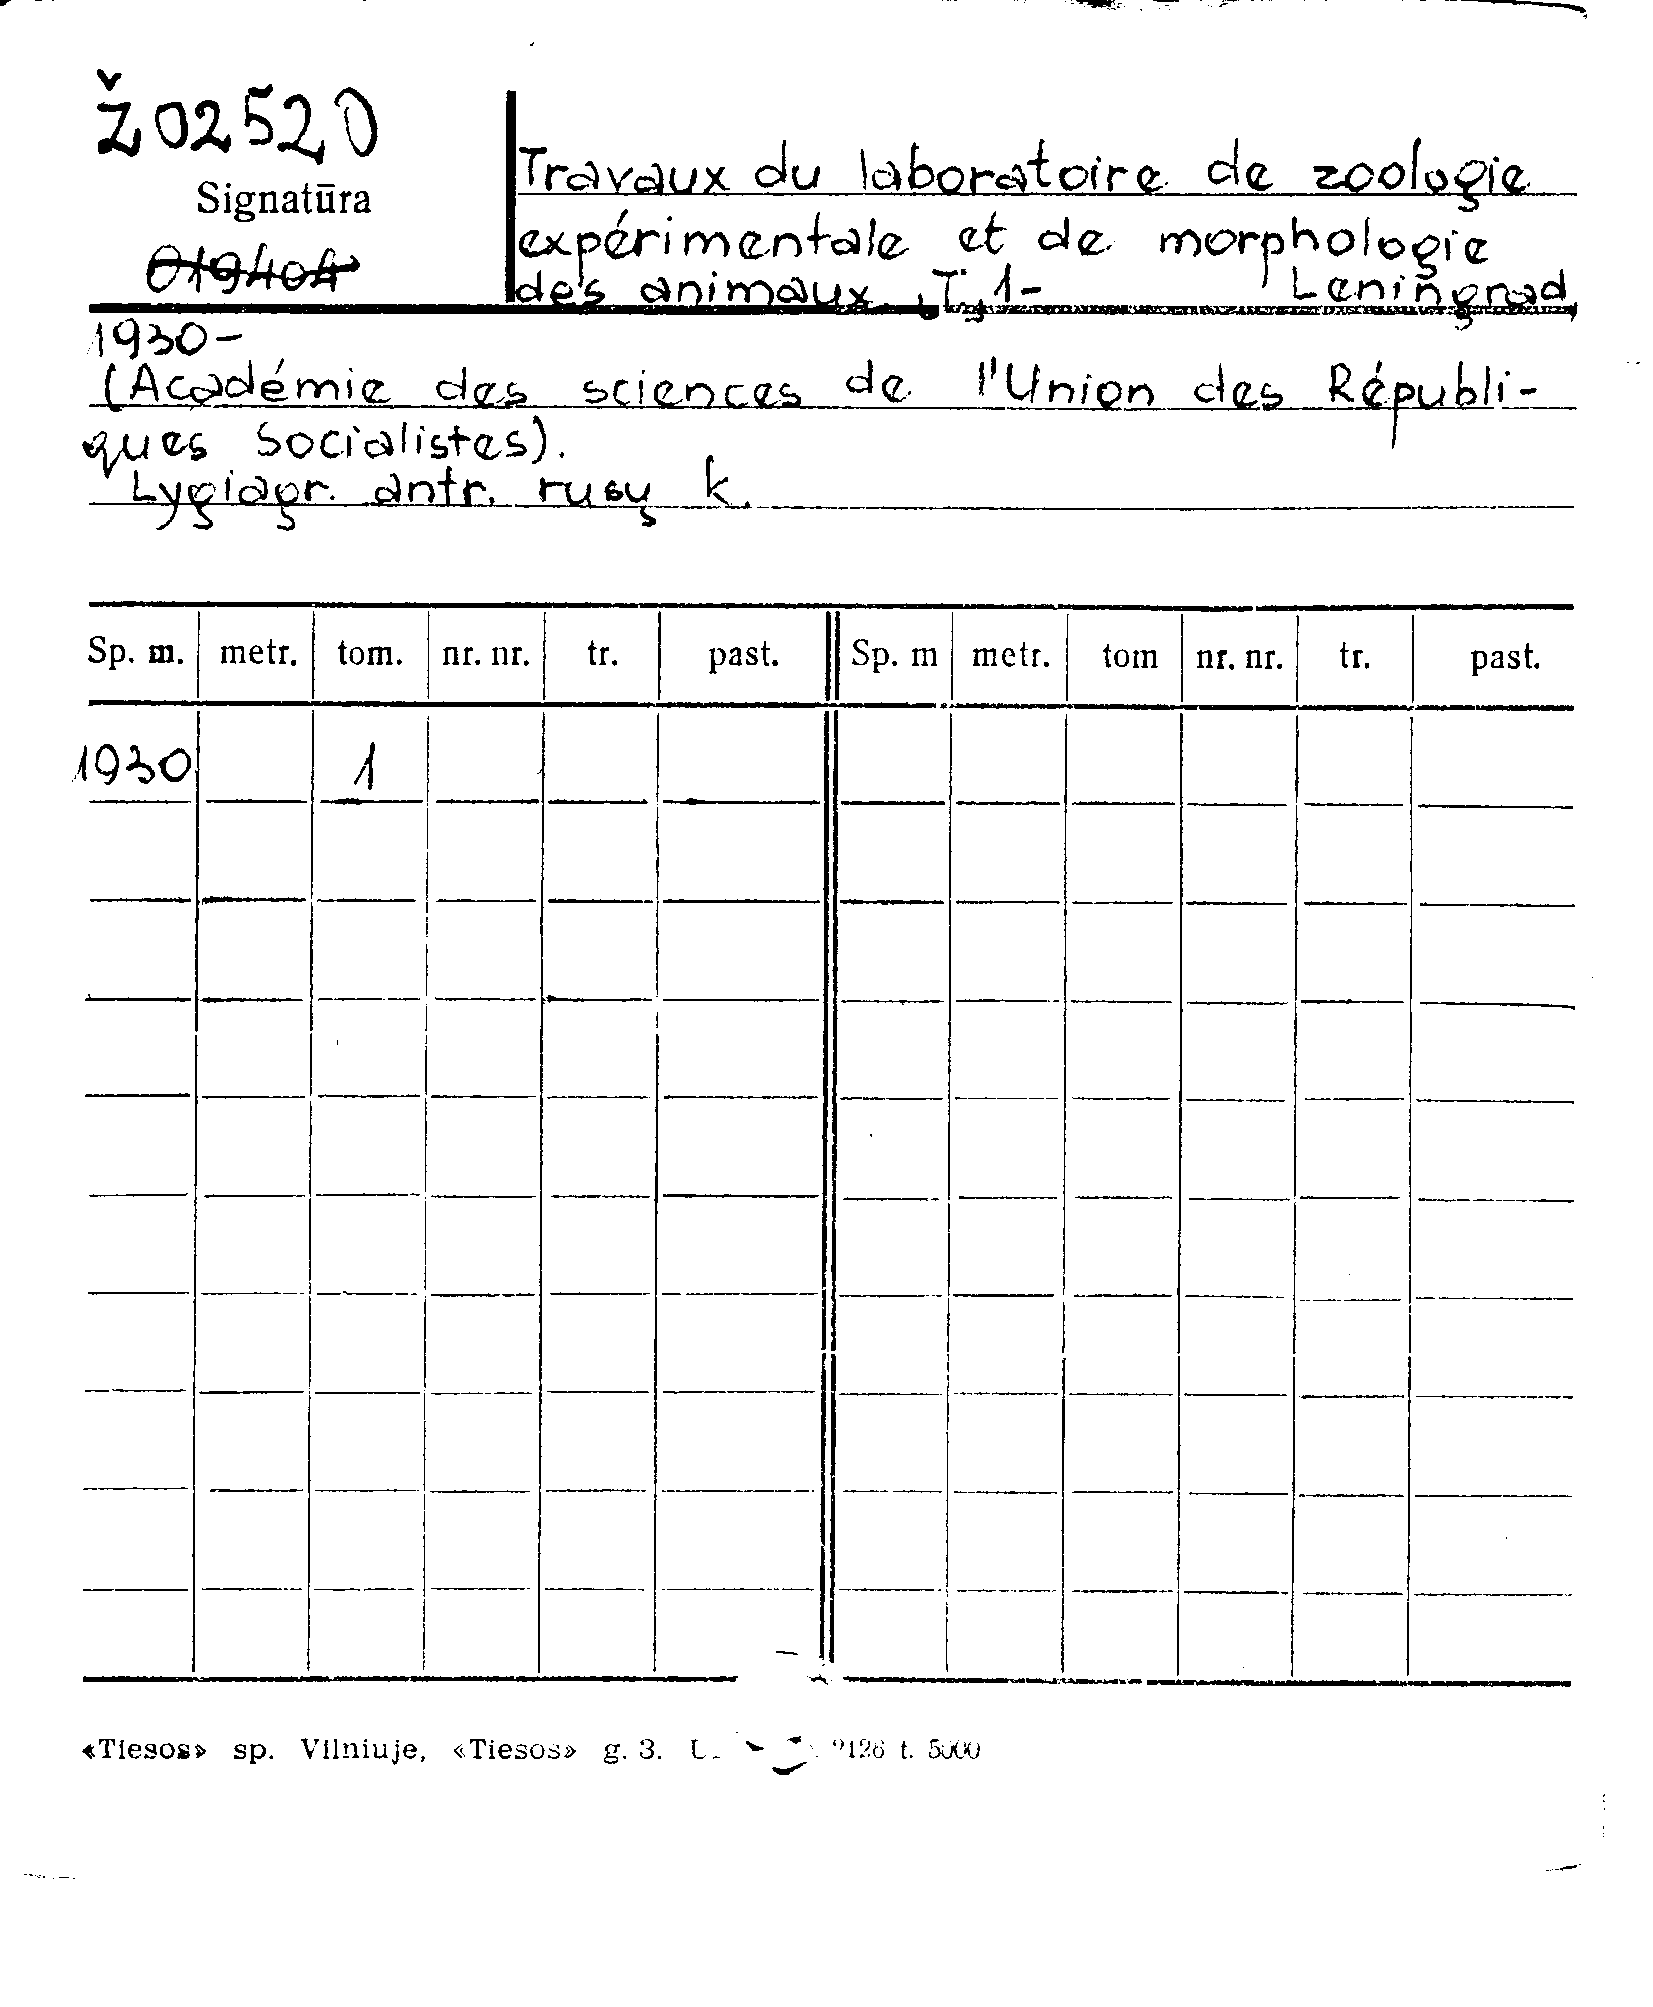 Ž02520
Signatūra
019404
Travaux du laboratoire de zoologie
expérimentale et de morphologie
des animaux, T. 1- Leningrad,
1930-
(Académie des sciences de l'Union des Républi-
ques Socialistes).
Lygiagr. antr. rusų k.
Sp. m. metr. tom. nr. nr. tr. past. Sp. m metr. tom nr. nr. tr. past.
1930 1
«Tiesos» sp. Vilniuje, «Tiesos» g. 3. t. 5000